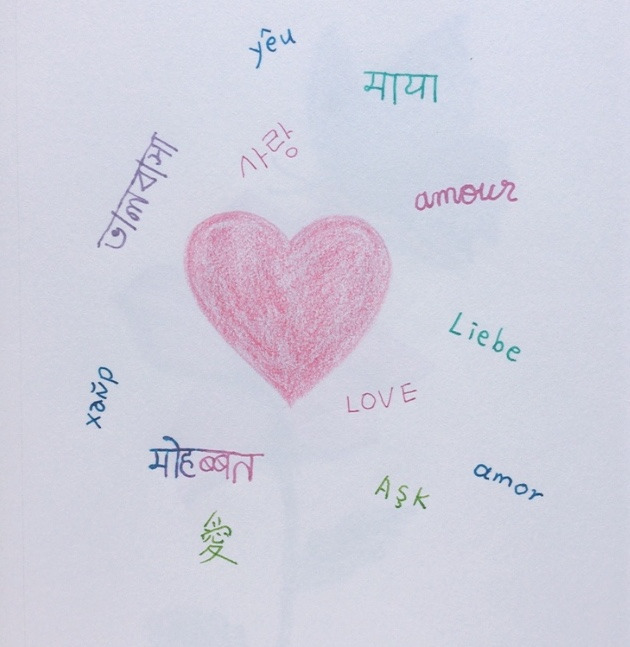 yêu
माया
사랑
ভালবাসা
amour
Liebe
хайр
LOVE
मोहब्बत
Aşk
amor
愛